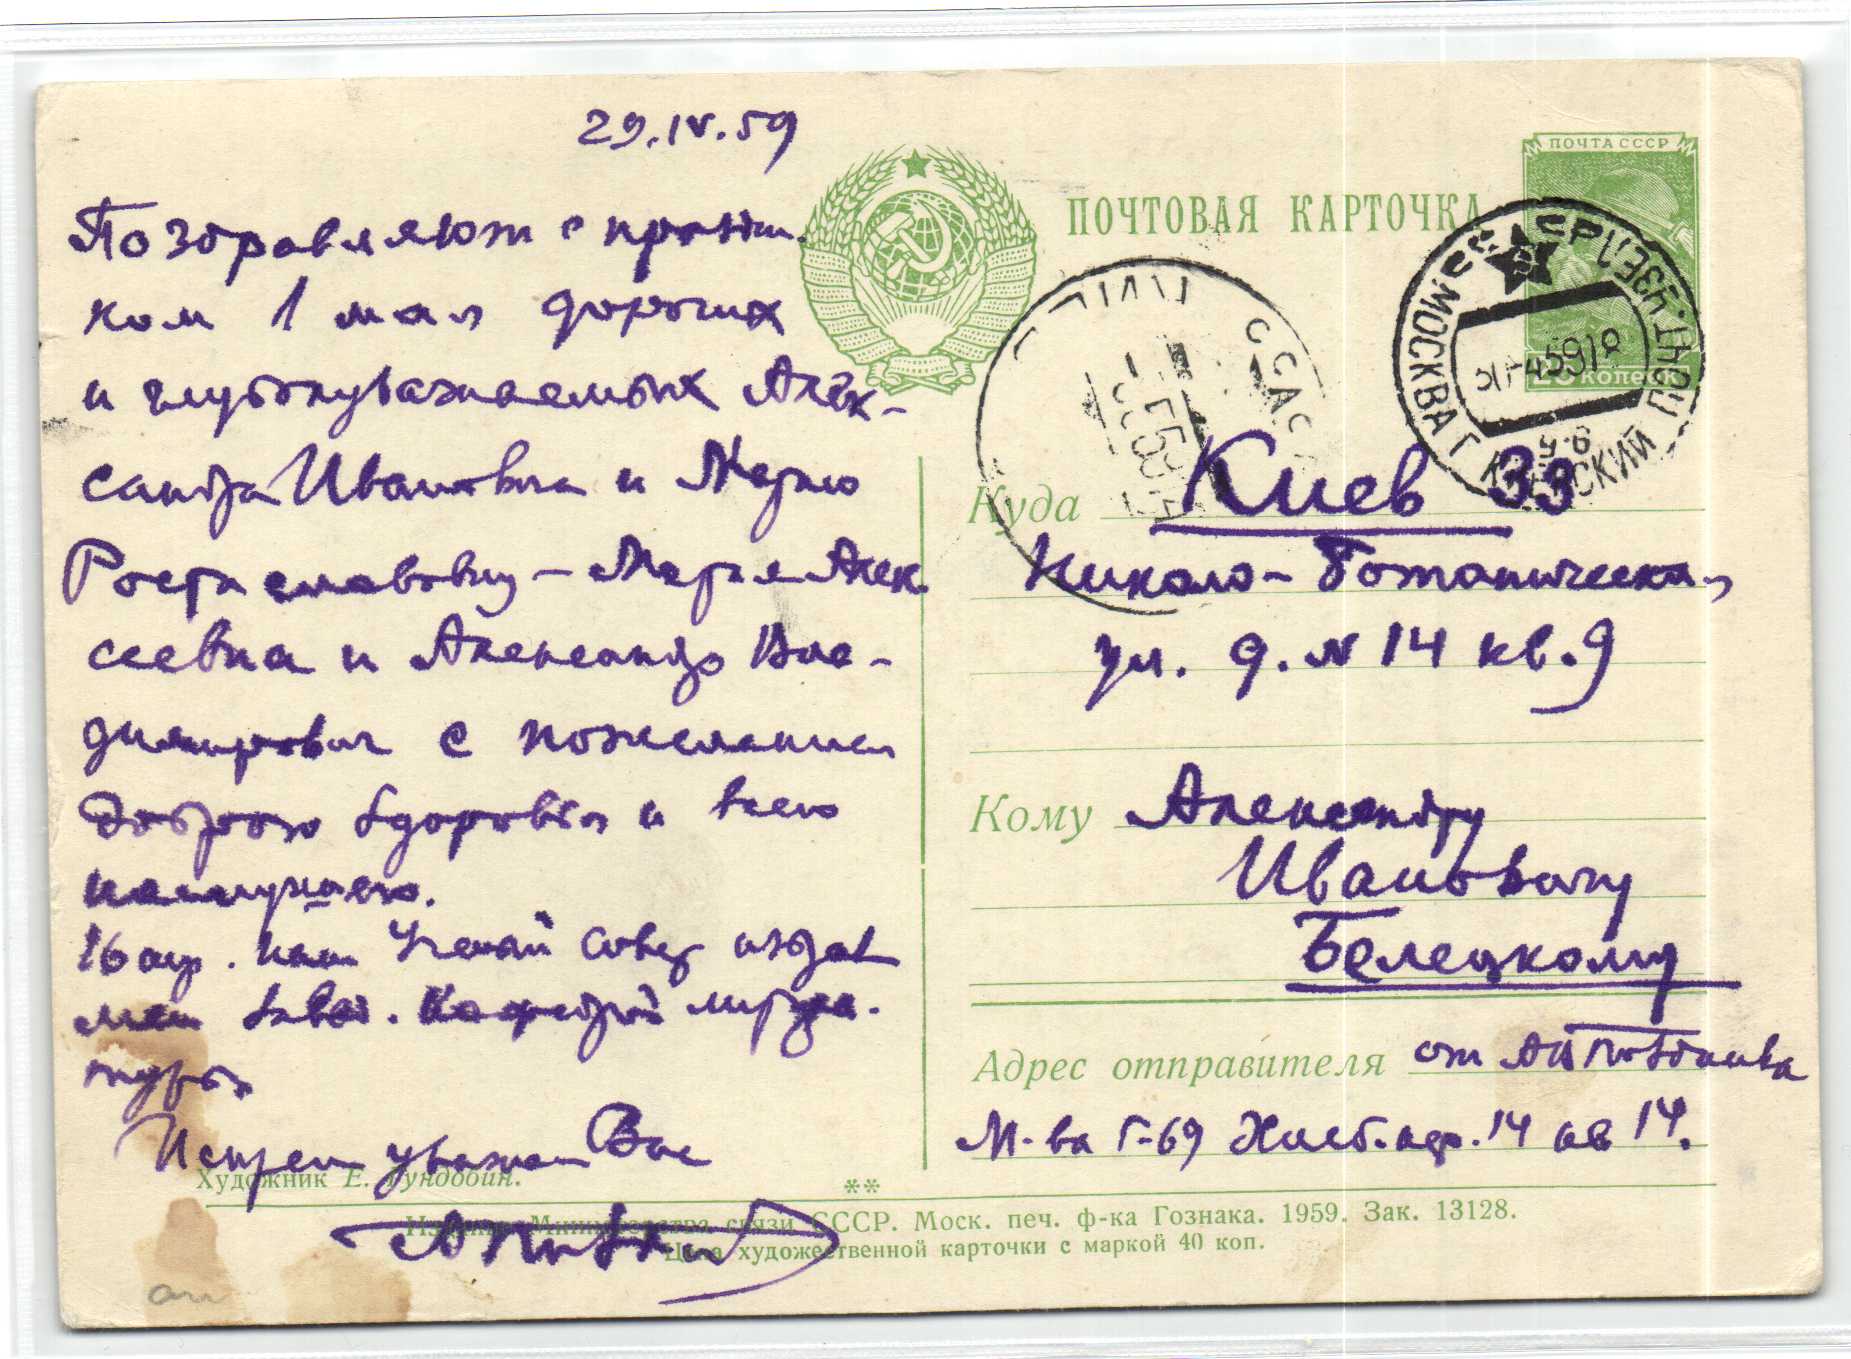 29.IV.59
Поздравляют с праздни-
ком 1 мая дорогих
и глубокоуважаемых Алек-
сандра Ивановича и Марию
Ростиславовну – Мария Алек
сеевна и Александр Вла-
димирович с пожеланием
доброго здоровья и всего
наилучшего.
16 апр. наш Ученый Совет избрал
меня зав. Кафедрой литера-
туры
Искрен уважающ Вас
ПОЧТОВАЯ КАРТОЧКА
ПОЧТА СССР
КОПЕЕК
МОСКВА Г
Куда Киев 33
Николо-Ботаническая
ул. д. № 14 кв. 9
Кому Александру
Ивановичу
Белецкому
Адрес отправителя от
М-ва Г-69 Хлеб. пер. 14 кв 14.
Художник Е. Гундобин.
**
Издание Министерства связи СССР. Моск. печ. ф-ка Гознака. 1959. Зак. 13128.
Цена художественной карточки с маркой 40 коп.